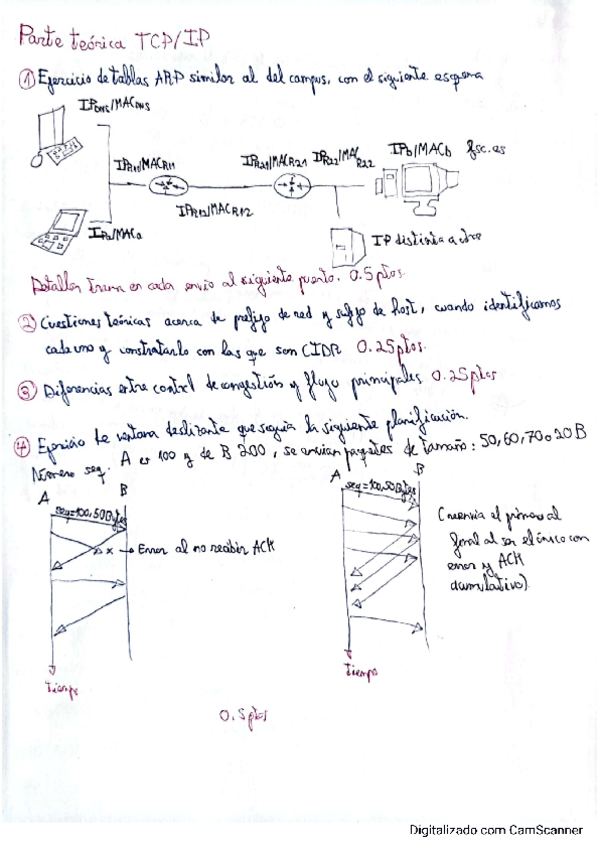 Parte teórica TCP/IP
① Ejercicio de tablas ARP similar al del campus, con el siguiente esquema
IPDNS/MACDNS
IPR11/MACR11
IPR21/MACR21
IPR22/MACR22
IPb/MACb
fsc.es
IPR12/MACR12
IPa/MACa
IP distinta a otra
Detallar trama en cada envío al siguiente puerto. 0.5 ptos.
② Cuestiones teóricas acerca de prefijo de red y sufijo de host, cuando identificamos
cada uno y constratarlo con las que son CIDR 0.25 ptos.
③ Diferencias entre control de congestión y flujo principales 0.25 ptos
④ Ejercicio de ventana deslizante que seguía la siguiente planificación.
Número seq. A es 100 y de B 200, se envían paquetes de tamaño: 50, 60, 70 o 20 B
A
B
seq=100, 50 Bytes
x → Error al no recibir ACK
Tiempo
A
B
seq=100, 50 Bytes
(reenvía el primero al
final al ser el único con
error y ACK
acumulativo).
Tiempo
0.5 ptos
Digitalizado com CamScanner